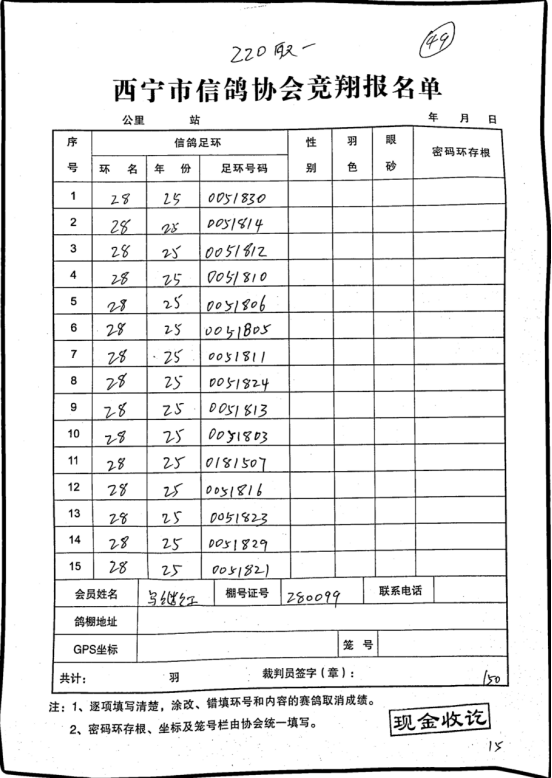 220取一
49
西宁市信鸽协会竞翔报名单
公里 站 年 月 日
序号 信鸽足环 性别 羽色 眼砂 密码环存根
环 名 年 份 足环号码
1 28 25 0051830
2 28 25 0051814
3 28 25 0051812
4 28 25 0051810
5 28 25 0051806
6 28 25 0051805
7 28 25 0051811
8 28 25 0051824
9 28 25 0051813
10 28 25 0051803
11 28 25 0181507
12 28 25 0051816
13 28 25 0051823
14 28 25 0051829
15 28 25 0051821
会员姓名 马继红 棚号证号 280099 联系电话
鸽棚地址
GPS坐标 笼 号
共计: 羽 裁判员签字(章): 150
注:1、逐项填写清楚,涂改、错填环号和内容的赛鸽取消成绩。
2、密码环存根、坐标及笼号栏由协会统一填写。
现金收讫
15